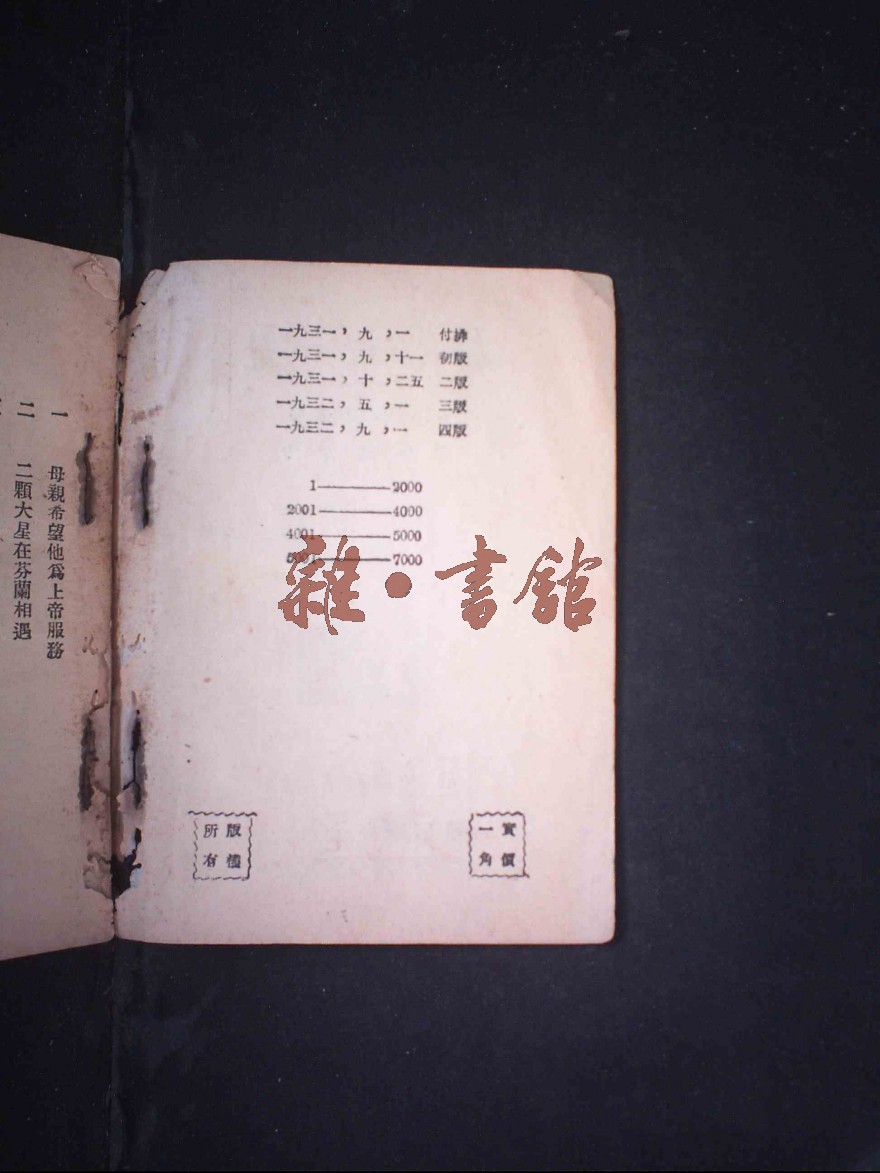 一九三一，九，一　付排
一九三一，九，十一　初版
一九三一，十，二五　二版
一九三二，五，一　三版
一九三二，九，一　四版
1————2000
2001————4000
4001————5000
5001————7000
雜·書館
版權所有
實價一角
一　母親希望他爲上帝服務
二　二顆大星在芬蘭相遇